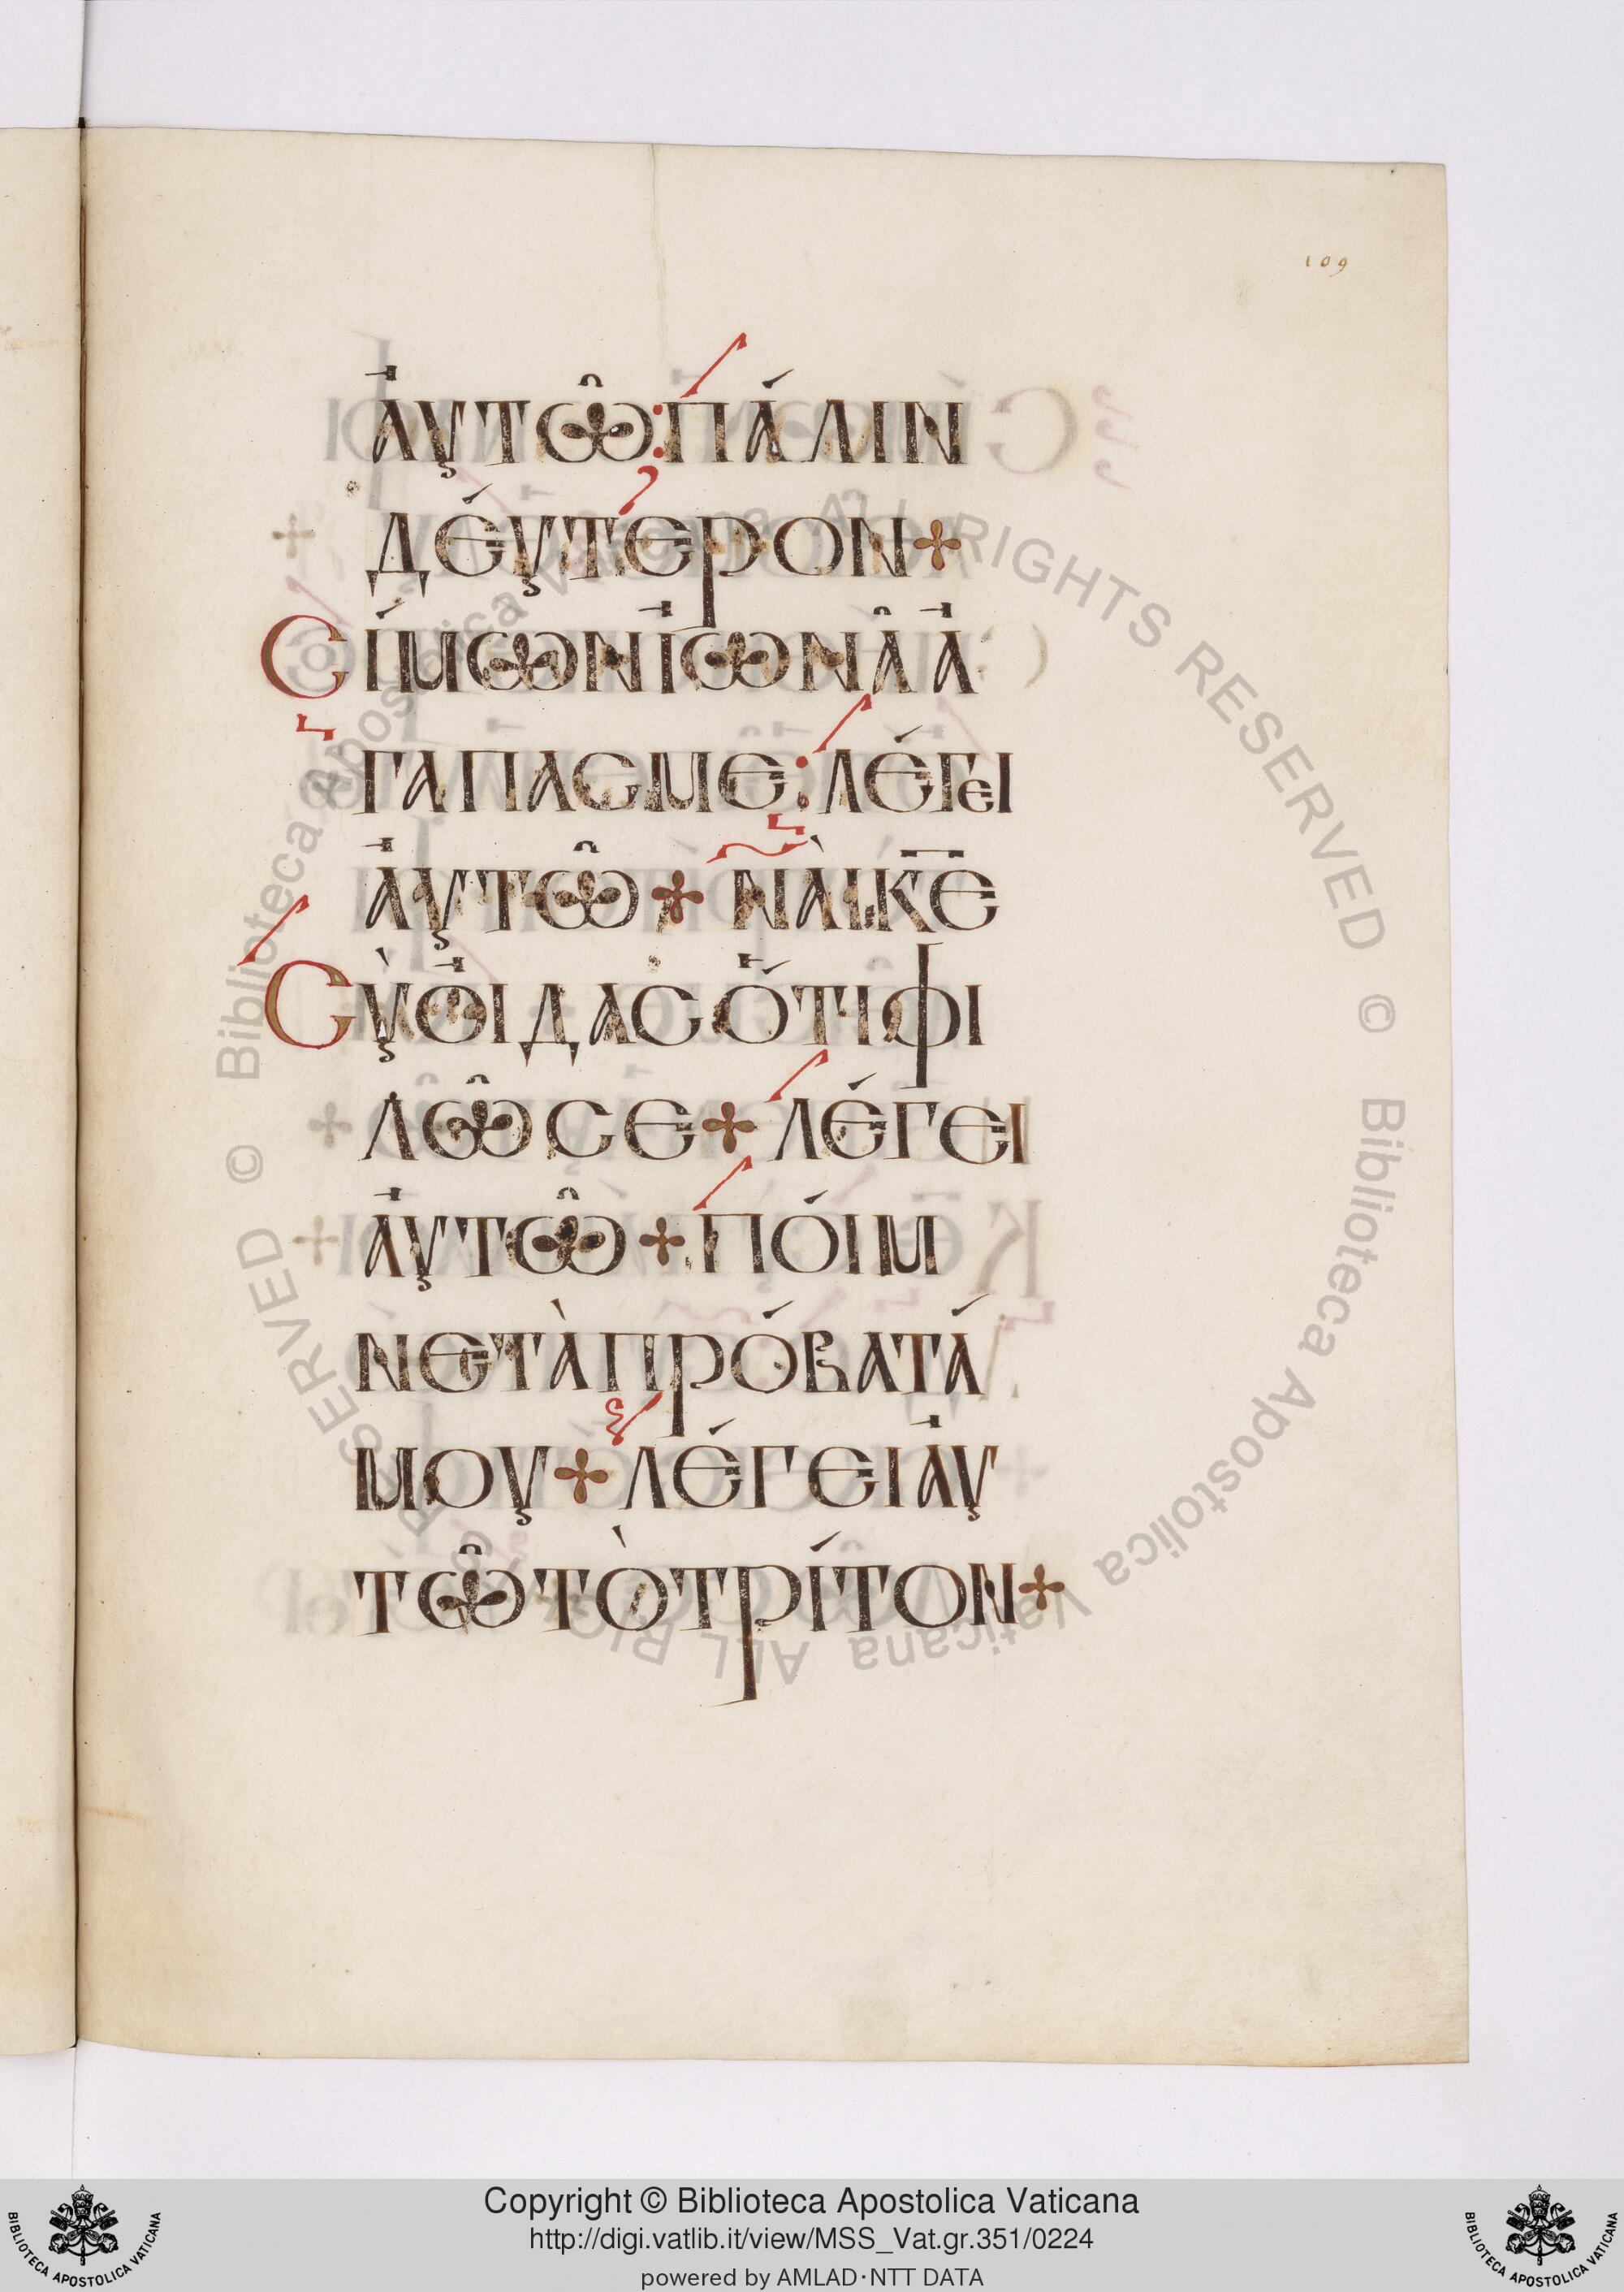 109
ἀυτῶ: πάλιν
δέυτερον +
Σίμων ἰωνᾶ ἀ
γαπασ με: λέγει
ἀυτῶ + νὰι κ̅ε̅
Σὺ ὀιδασ ὅτι φι
λῶ σε + λέγει
ἀυτῶ + πόιμ
νε τὰ πρόβατά
μου + λέγει ἀυ
τῶ τὸ τρίτον +
© Biblioteca Apostolica Vaticana ALL RIGHTS RESERVED © Biblioteca Apostolica Vaticana ALL RIGHTS RESERVED
Copyright © Biblioteca Apostolica Vaticana
http://digi.vatlib.it/view/MSS_Vat.gr.351/0224
powered by AMLAD·NTT DATA
BIBLIOTECA APOSTOLICA VATICANA
BIBLIOTECA APOSTOLICA VATICANA